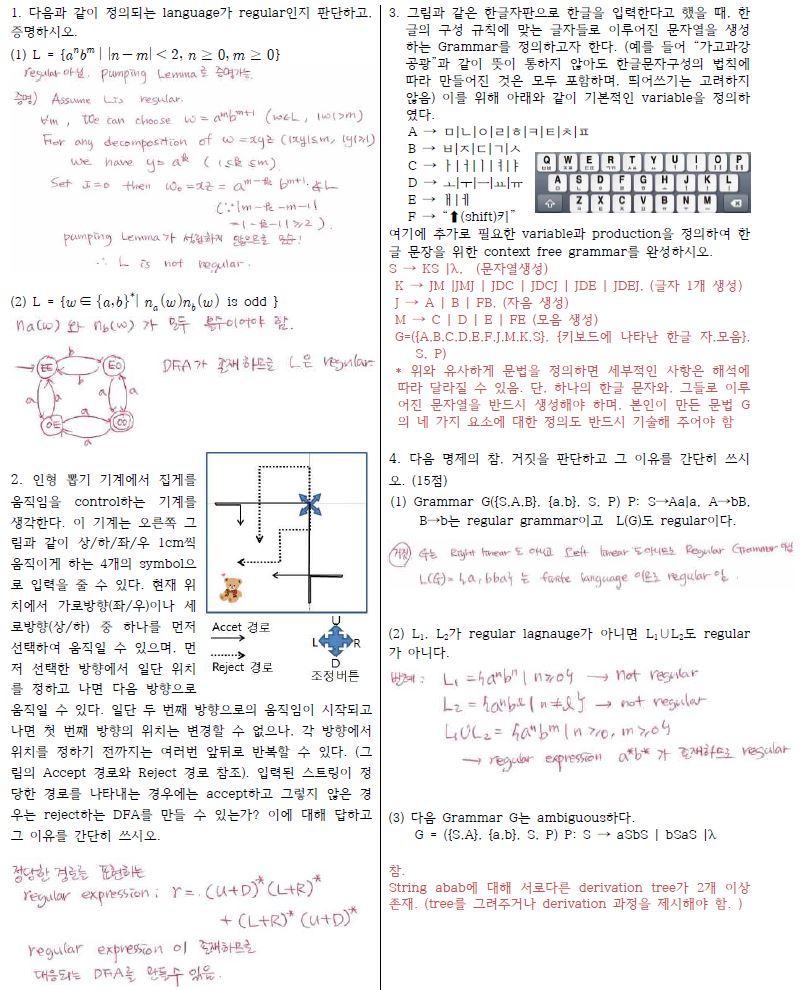 1. 다음과 같이 정의되는 language가 regular인지 판단하고,
증명하시오.
(1) L = {aⁿbᵐ | |n−m| < 2, n ≥ 0, m ≥ 0}
regular 아님. pumping Lemma로 증명가능.
증명) Assume L is regular.
∀m, We can choose w = aᵐbᵐ⁺¹ (w∈L, |w|>m)
For any decomposition of w = xyz (|xy|≤m, |y|≥1)
we have y = aᵏ (1≤k≤m).
Set i=0 then w₀ = xz = aᵐ⁻ᵏ bᵐ⁺¹ ∉ L
(∵ |m-k-m-1|
= |-k-1| ≥ 2).
pumping Lemma가 성립하지 않으므로 모순!
∴ L is not regular.
(2) L = {w ∈ {a,b}*| nₐ(w)n_b(w) is odd }
na(w) 와 nb(w) 가 모두 홀수이어야 함.
DFA가 존재하므로 L은 regular.
EE
b
EO
b
a
a
a
a
OE
a
OO
a
2. 인형 뽑기 기계에서 집게를
움직임을 control하는 기계를
생각한다. 이 기계는 오른쪽 그
림과 같이 상/하/좌/우 1cm씩
움직이게 하는 4개의 symbol으
로 입력을 줄 수 있다. 현재 위
치에서 가로방향(좌/우)이나 세
로방향(상/하) 중 하나를 먼저
선택하여 움직일 수 있으며, 먼
저 선택한 방향에서 일단 위치
를 정하고 나면 다음 방향으로
움직일 수 있다. 일단 두 번째 방향으로의 움직임이 시작되고
나면 첫 번째 방향의 위치는 변경할 수 없으나, 각 방향에서
위치를 정하기 전까지는 여러번 앞뒤로 반복할 수 있다. (그
림의 Accept 경로와 Reject 경로 참조). 입력된 스트링이 정
당한 경로를 나타내는 경우에는 accept하고 그렇지 않은 경
우는 reject하는 DFA를 만들 수 있는가? 이에 대해 답하고
그 이유를 간단히 쓰시오.
Accet 경로
Reject 경로
U
L
R
D
조정버튼
정당한 경로를 표현하는
regular expression; r = (U+D)*(L+R)*
+ (L+R)*(U+D)*
regular expression 이 존재하므로
대응되는 DFA를 만들수 있음.
3. 그림과 같은 한글자판으로 한글을 입력한다고 했을 때, 한
글의 구성 규칙에 맞는 글자들로 이루어진 문자열을 생성
하는 Grammar를 정의하고자 한다. (예를 들어 “가고과강
공광”과 같이 뜻이 통하지 않아도 한글문자구성의 법칙에
따라 만들어진 것은 모두 포함하며, 띄어쓰기는 고려하지
않음) 이를 위해 아래와 같이 기본적인 variable을 정의하
였다.
A → ㅁ|ㄴ|ㅇ|ㄹ|ㅎ|ㅋ|ㅌ|ㅊ|ㅍ
B → ㅂ|ㅈ|ㄷ|ㄱ|ㅅ
C → ㅏ|ㅓ|ㅣ|ㅕ|ㅑ
D → ㅗ|ㅜ|ㅡ|ㅛ|ㅠ
E → ㅐ|ㅔ
F → “⬆(shift)키”
Q W E R T Y U I O P
A S D F G H J K L
Z X C V B N M
여기에 추가로 필요한 variable과 production을 정의하여 한
글 문장을 위한 context free grammar를 완성하시오.
S → KS |λ, (문자열생성)
K → JM |JMJ | JDC | JDCJ | JDE | JDEJ, (글자 1개 생성)
J → A | B | FB, (자음 생성)
M → C | D | E | FE (모음 생성)
G=({A,B,C,D,E,F,J,M,K,S}, {키보드에 나타난 한글 자,모음},
S, P)
* 위와 유사하게 문법을 정의하면 세부적인 사항은 해석에
따라 달라질 수 있음. 단, 하나의 한글 문자와, 그들로 이루
어진 문자열을 반드시 생성해야 하며, 본인이 만든 문법 G
의 네 가지 요소에 대한 정의도 반드시 기술해 주어야 함
4. 다음 명제의 참, 거짓을 판단하고 그 이유를 간단히 쓰시
오. (15점)
(1) Grammar G({S,A,B}, {a,b}, S, P) P: S→Aa|a, A→bB,
B→b는 regular grammar이고 L(G)도 regular이다.
거짓 G는 Right linear 도 아니고 Left linear 도 아니므로 Regular Grammar 아님
L(G) = {a, bba} 는 finite language 이므로 regular 임.
(2) L₁, L₂가 regular lagnauge가 아니면 L₁∪L₂도 regular
가 아니다.
반례: L₁ = {aⁿbⁿ | n≥0} → not regular
L₂ = {aⁿbˡ | n≠l} → not regular
L₁∪L₂ = {aⁿbᵐ | n≥0, m≥0}
→ regular expression a*b* 가 존재하므로 regular
(3) 다음 Grammar G는 ambiguous하다.
G = ({S,A}, {a,b}, S, P) P: S → aSbS | bSaS |λ
참.
String abab에 대해 서로다른 derivation tree가 2개 이상
존재. (tree를 그려주거나 derivation 과정을 제시해야 함. )